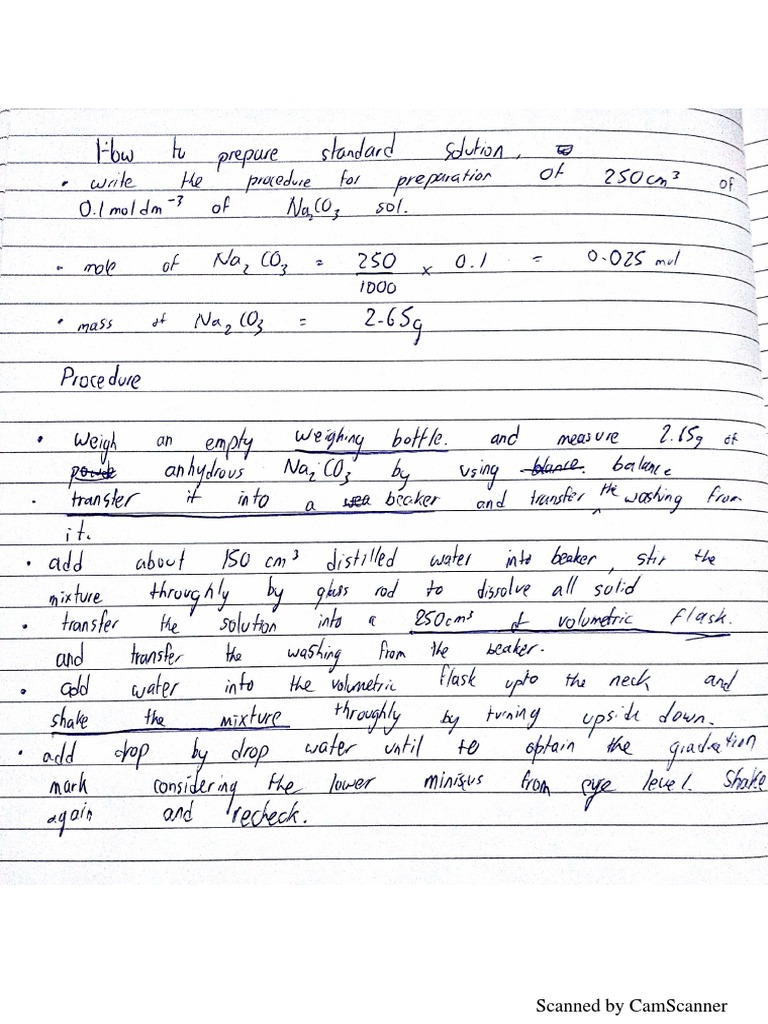 How to prepare standard solution,
• write the procedure for preparation of 250cm³ of
0.1 mol dm⁻³ of Na₂CO₃ sol.
• mole of Na₂CO₃ = 250/1000 x 0.1 = 0.025 mol
• mass of Na₂CO₃ = 2.65g
Procedure
• weigh an empty weighing bottle. and measure 2.65g of
anhydrous Na₂CO₃ by using balance
• transfer it into a beaker and transfer the washing from
it.
• add about 150 cm³ distilled water into beaker, stir the
mixture throughly by glass rod to dissolve all solid
• transfer the solution into a 250cm³ of volumetric flask.
and transfer the washing from the beaker.
• add water into the volumetric flask upto the neck and
shake the mixture throughly by turning upside down.
• add drop by drop water until to optain the gradation
mark considering the lower miniscus from eye level. Shake
again and recheck.
Scanned by CamScanner